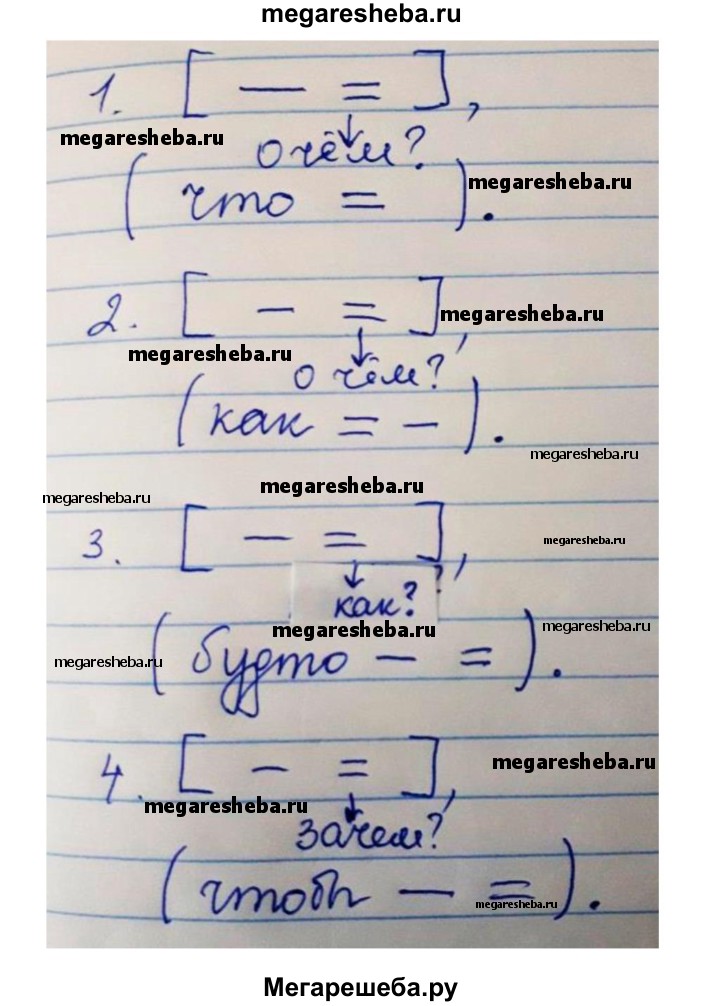 megaresheba.ru
1. [ — = ],
megaresheba.ru
о чём?
megaresheba.ru
( что = ).
2. [ — = ],
megaresheba.ru
megaresheba.ru
о чём?
( как = — ).
megaresheba.ru
megaresheba.ru
megaresheba.ru
3. [ — = ],
megaresheba.ru
как?
megaresheba.ru
megaresheba.ru
megaresheba.ru
( будто — = ).
4. [ — = ],
megaresheba.ru
megaresheba.ru
зачем?
( чтобы — = ).
megaresheba.ru
Мегарешеба.ру